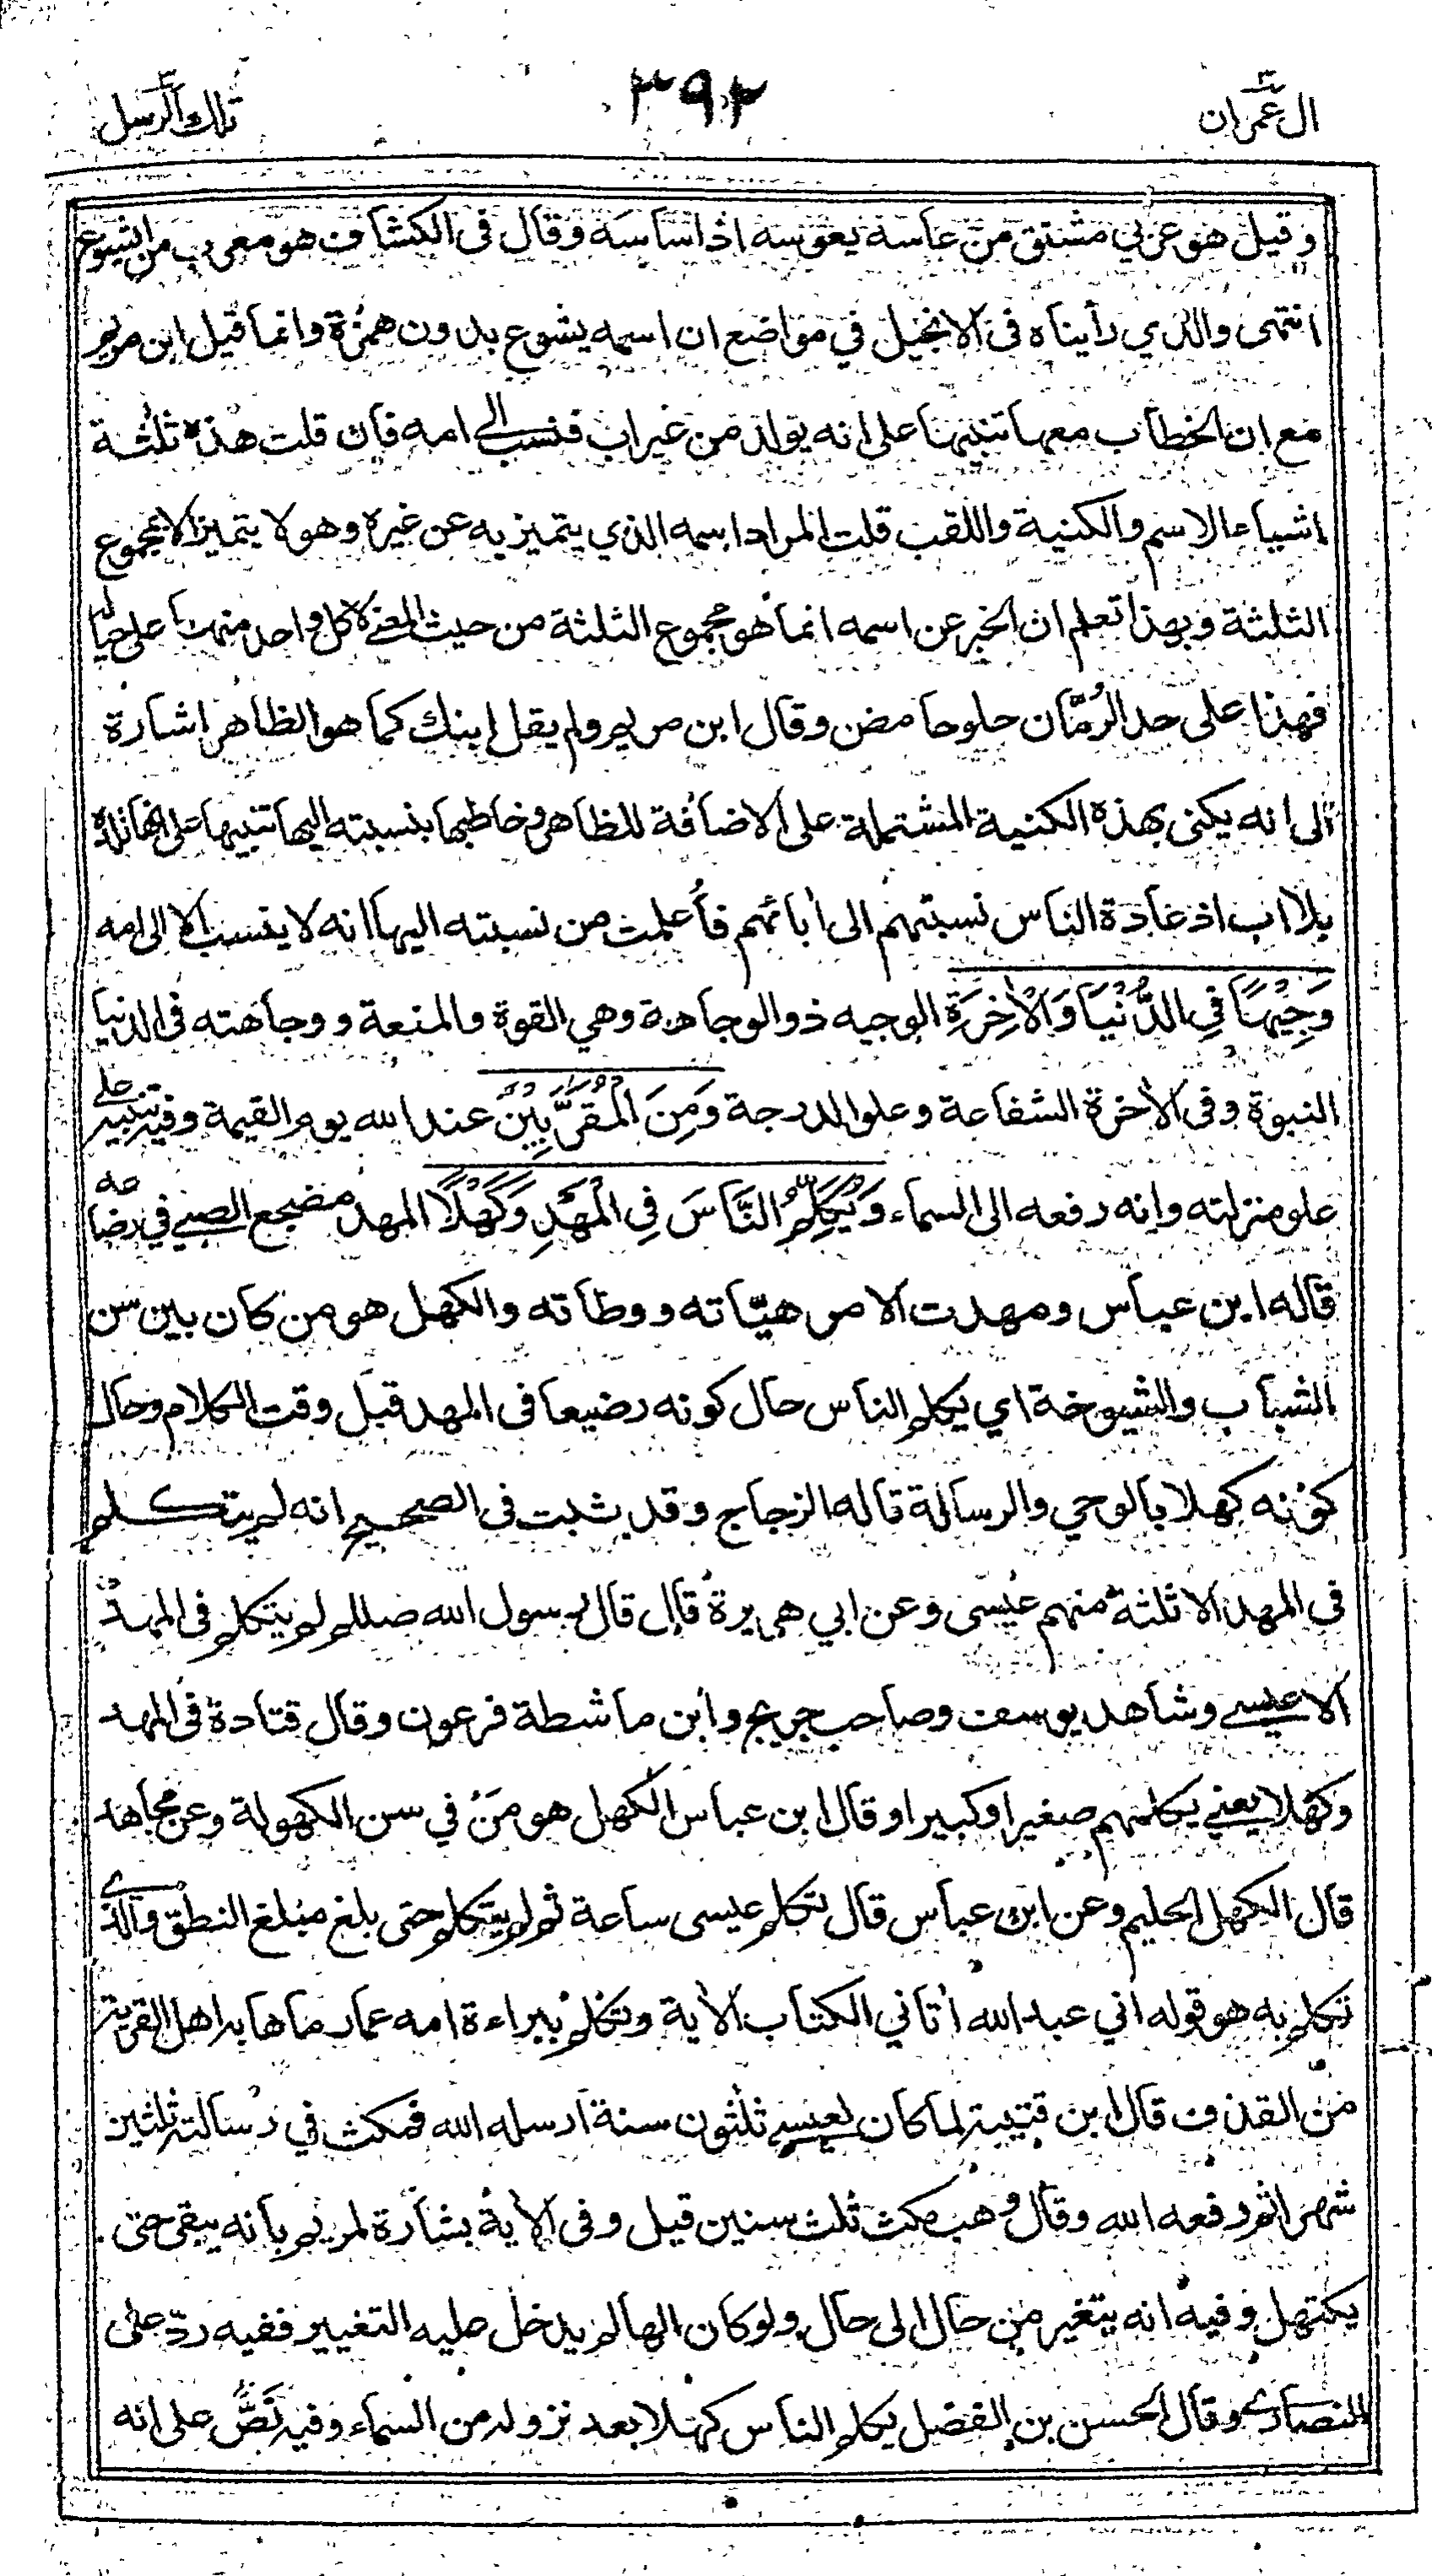 ال عمران ٣
٣٩٢
تلك الرسل ٣
وقيل هو عربي مشتق من عاسة يعوسه اذا ساسة وقال فى الكشاف هو معرب من ايشوع
انتهى والذي رأيناه فى الانجيل في مواضع ان اسمه يشوع بدون همزة وانما قيل ابن مريم
مع ان الخطاب معها تنبيها على انه يولد من غير اب فنسب الى امه فان قلت هذه ثلثة
اشياء الاسم والكنية واللقب قلت المراد اسمه الذي يتميز به عن غيره وهو لا يتميز الا بمجموع
الثلثة وبهذا تعلم ان الخبر عن اسمه انما هو مجموع الثلثة من حيث المعنى لا كل واحد منها على حياله
فهذا على حد الرُمّان حلو حامض وقال ابن مريم ولم يقل ابنك كما هو الظاهر اشارة
الى انه يكنى بهذه الكنية المشتملة على الاضافة للظاهر وخاطبها بنسبته اليها تنبيها على انها تلده
بلا اب اذ عادة الناس نسبتهم الى أبائهم فأعلمت من نسبته اليها انه لا ينسب الا الى امه
وَجِيْهًا فِي الدُّنْيَا وَالْأٰخِرَةِ الوجيه ذو الوجاهة وهي القوة والمنعة ووجاهته فى الدنيا
النبوة وفى الأخرة الشفاعة وعلو الدرجة وَمِنَ الْمُقَرَّبِيْنَ عند الله يوم القيمة وفيه تنبيه على
علو منزلته وانه رفعه الى السماء وَيُكَلِّمُ النَّاسَ فِي الْمَهْدِ وَكَهْلًا المهد مضجع الصبي في رضاعه
قاله ابن عباس ومهدت الامر هيّاته ووطاته والكهل هو من كان بين سن
الشباب والشيوخة اي يكلم الناس حال كونه رضيعا فى المهد قبل وقت الكلام وحال
كونه كهلا بالوحي والرسالة قاله الزجاج وقد ثبت فى الصحيح انه لم يتكلم
في المهد الا ثلثة منهم عيسى وعن ابي هريرة قال قال رسول الله صللم لم يتكلم فى المهد
الا عيسى وشاهد يوسف وصاحب جريج وابن ماشطة فرعون وقال قتادة فى المهد
وكهلا يعني يكلمهم صغيرا وكبيرا وقال ابن عباس الكهل هو مَن في سن الكهولة وعن مجاهد
قال الكهل الحليم وعن ابن عباس قال تكلم عيسى ساعة ثم لم يتكلم حتى بلغ مبلغ النطق والذي
تكلم به هو قوله اني عبد الله أتاني الكتاب الأية وتكلم ببراءة امه عما رماها به اهل القرية
من القذف قال ابن قتيبة لما كان لعيسى ثلثون سنة ارسله الله فمكث في رسالته ثلثين
شهرا ثم رفعه الله وقال وهب مكث ثلث سنين قيل وفى الأية بشارة لمريم بأنه يبقى حتى
يكتهل وفيه انه يتغير من حال الى حال ولو كان الها لم يدخل عليه التغيير ففيه ردّ على
النصارى وقال الحسن بن الفضل يكلم الناس كهلا بعد نزوله من السماء وفيه نَصٌّ على انه